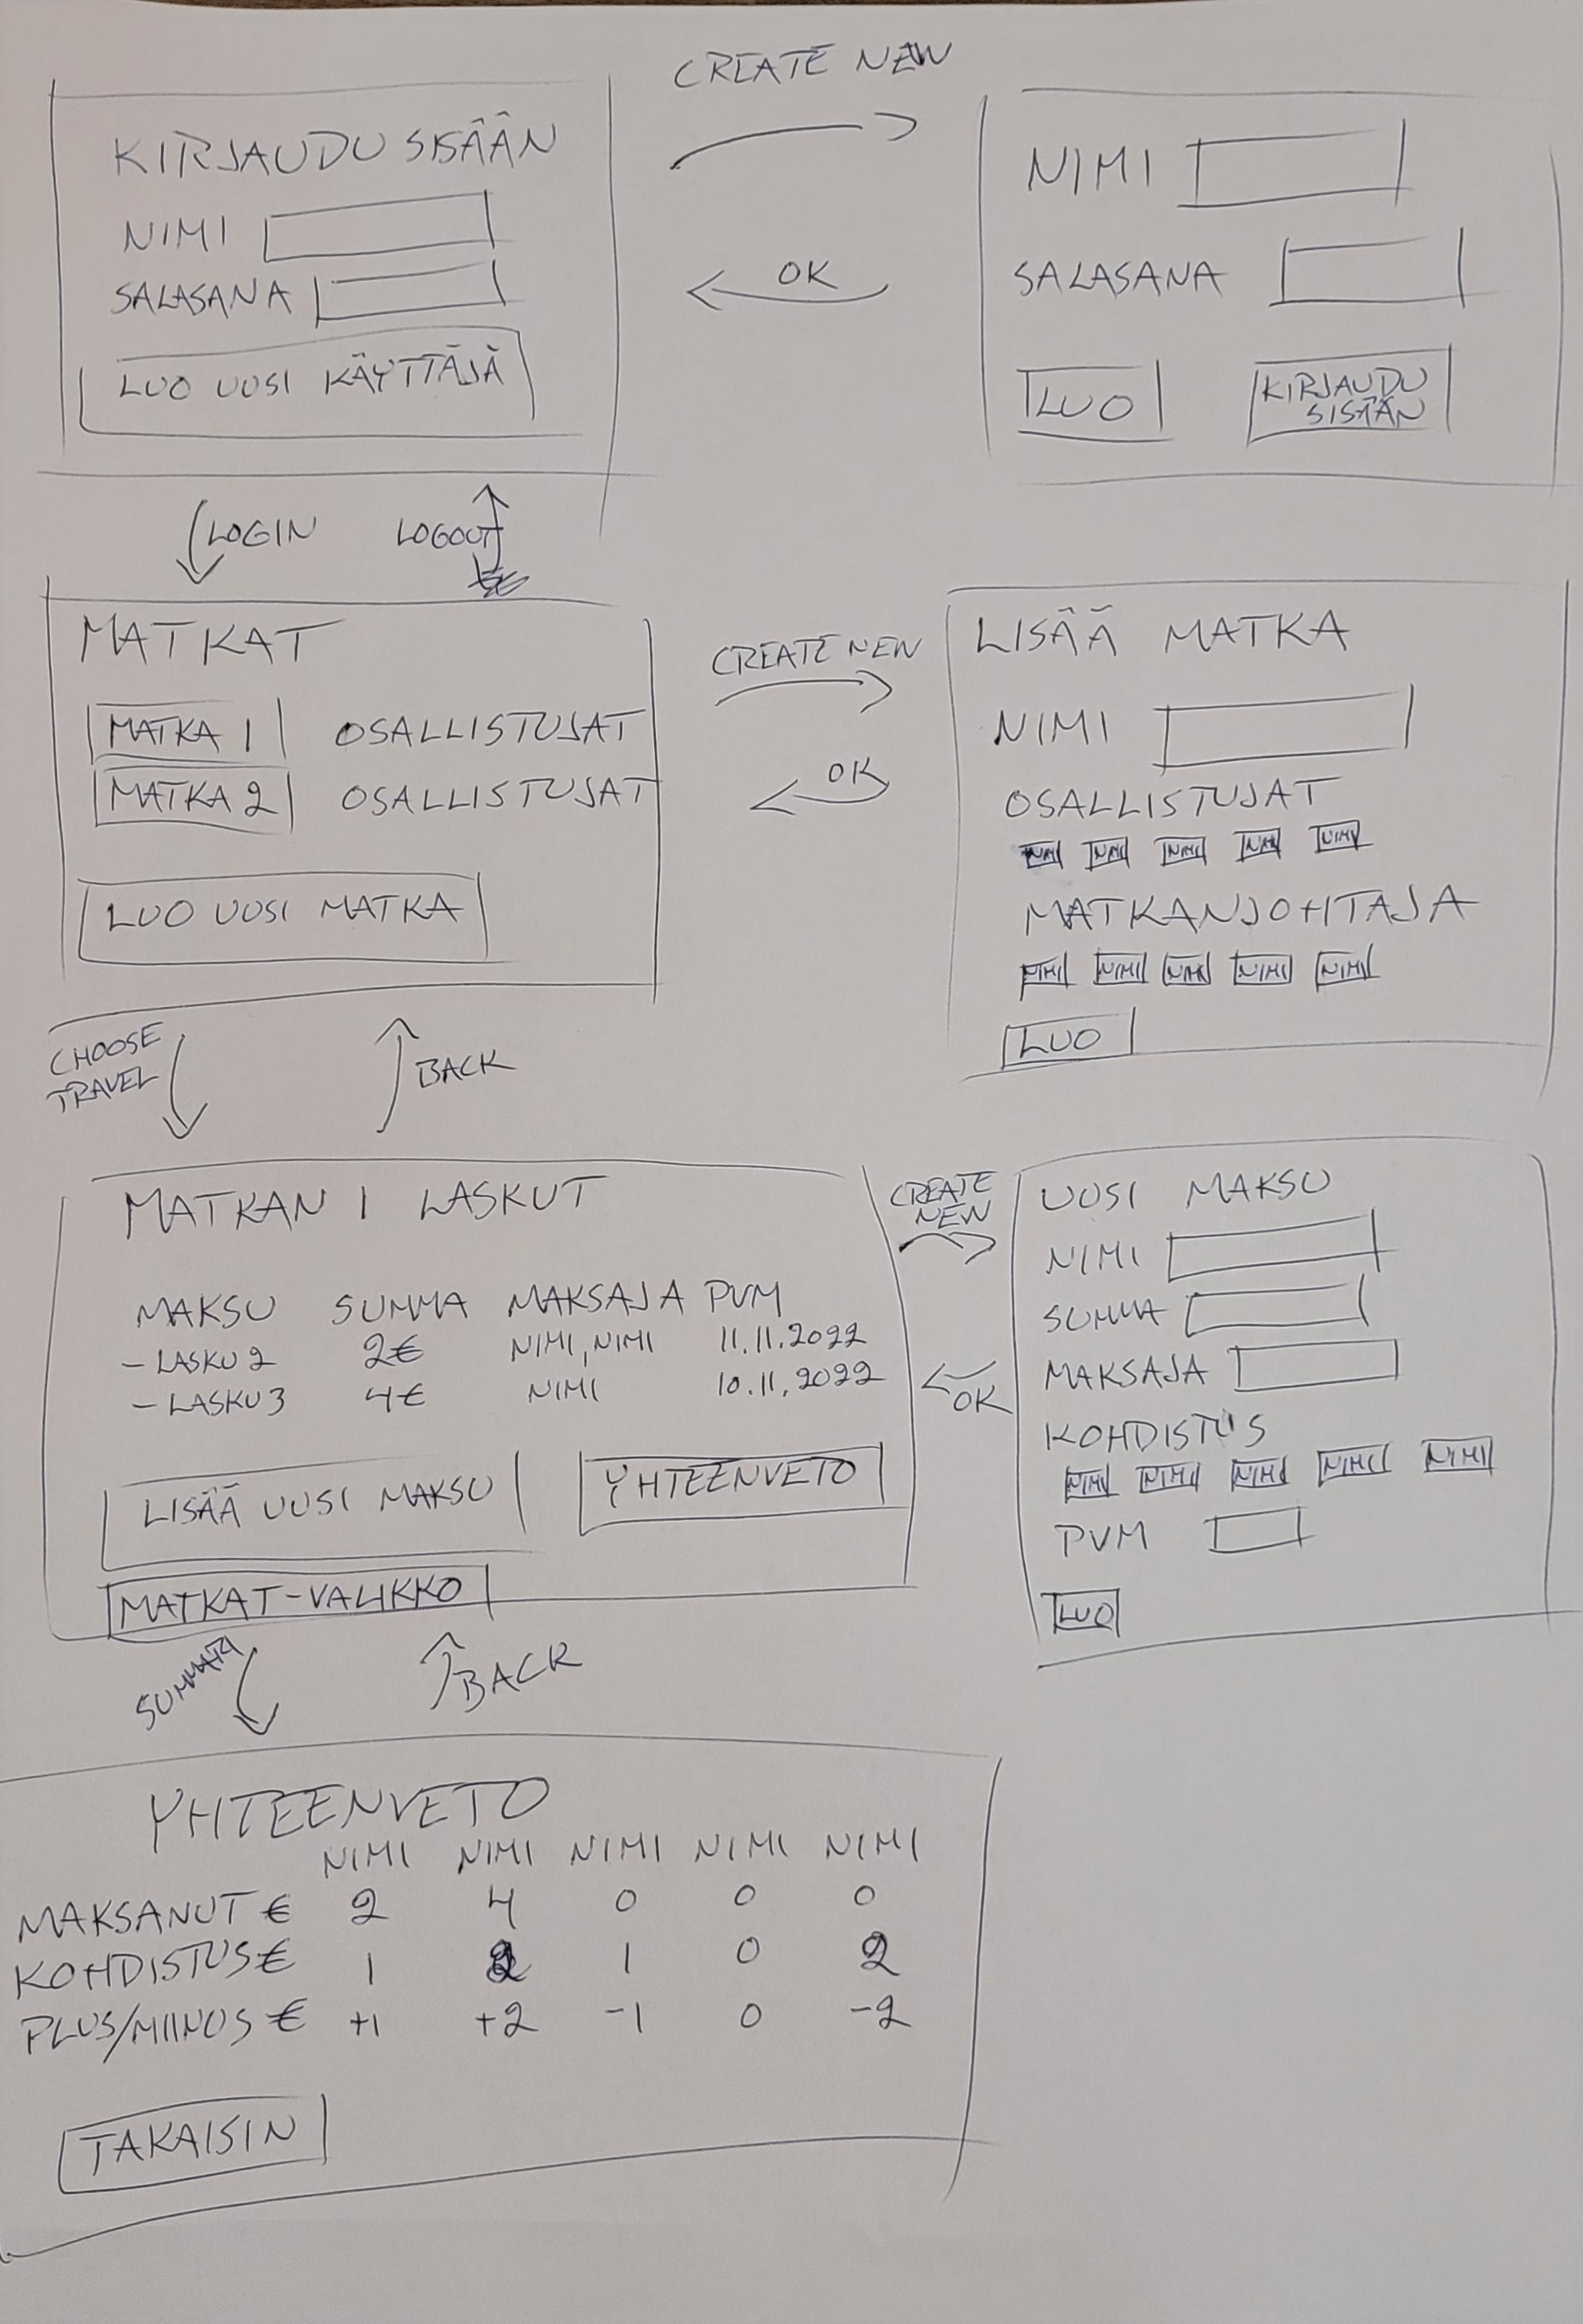 CREATE NEW
KIRJAUDU SISÄÄN
NIMI
SALASANA
LUO UUSI KÄYTTÄJÄ
OK
NIMI
SALASANA
LUO
KIRJAUDU
SISÄÄN
LOGIN
LOGOUT
MATKAT
MATKA 1 OSALLISTUJAT
MATKA 2 OSALLISTUJAT
LUO UUSI MATKA
CREATE NEW
OK
LISÄÄ MATKA
NIMI
OSALLISTUJAT
NIMI NIMI NIMI NIMI NIMI
MATKANJOHTAJA
NIMI NIMI NIMI NIMI NIMI
LUO
CHOOSE
TRAVEL
BACK
MATKAN 1 LASKUT
MAKSU SUMMA MAKSAJA PVM
- LASKU 2 2€ NIMI, NIMI 11.11.2022
- LASKU 3 4€ NIMI 10.11.2022
LISÄÄ UUSI MAKSU YHTEENVETO
MATKAT-VALIKKO
CREATE
NEW
OK
UUSI MAKSU
NIMI
SUMMA
MAKSAJA
KOHDISTUS
NIMI NIMI NIMI NIMI NIMI
PVM
LUO
SUMMARY
BACK
YHTEENVETO
NIMI NIMI NIMI NIMI NIMI
MAKSANUT € 2 4 0 0 0
KOHDISTUS € 1 2 1 0 2
PLUS/MIINUS € +1 +2 -1 0 -2
TAKAISIN